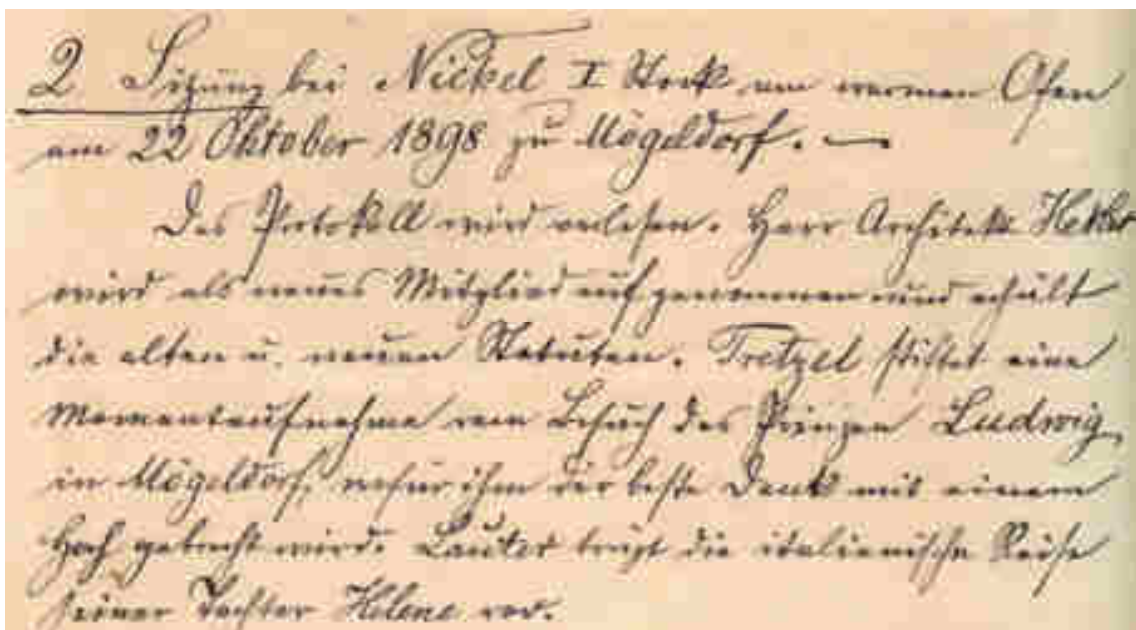 2 Sitzung bei Nickel I Stock am warmen Ofen
am 22 Oktober 1898 zu Mögeldorf. —
Das Protokoll wird verlesen. Herr Architekt
wird als neues Mitglied aufgenommen und erhält
die alten u. neuen Statuten. Tretzel stiftet eine
Momentaufnahme vom Besuch des Prinzen Ludwig
in Mögeldorf, wofür ihm der beste Dank mit einem
Hoch gebracht wird. Lauter trägt die italienische Reise
seiner Tochter Helene vor.